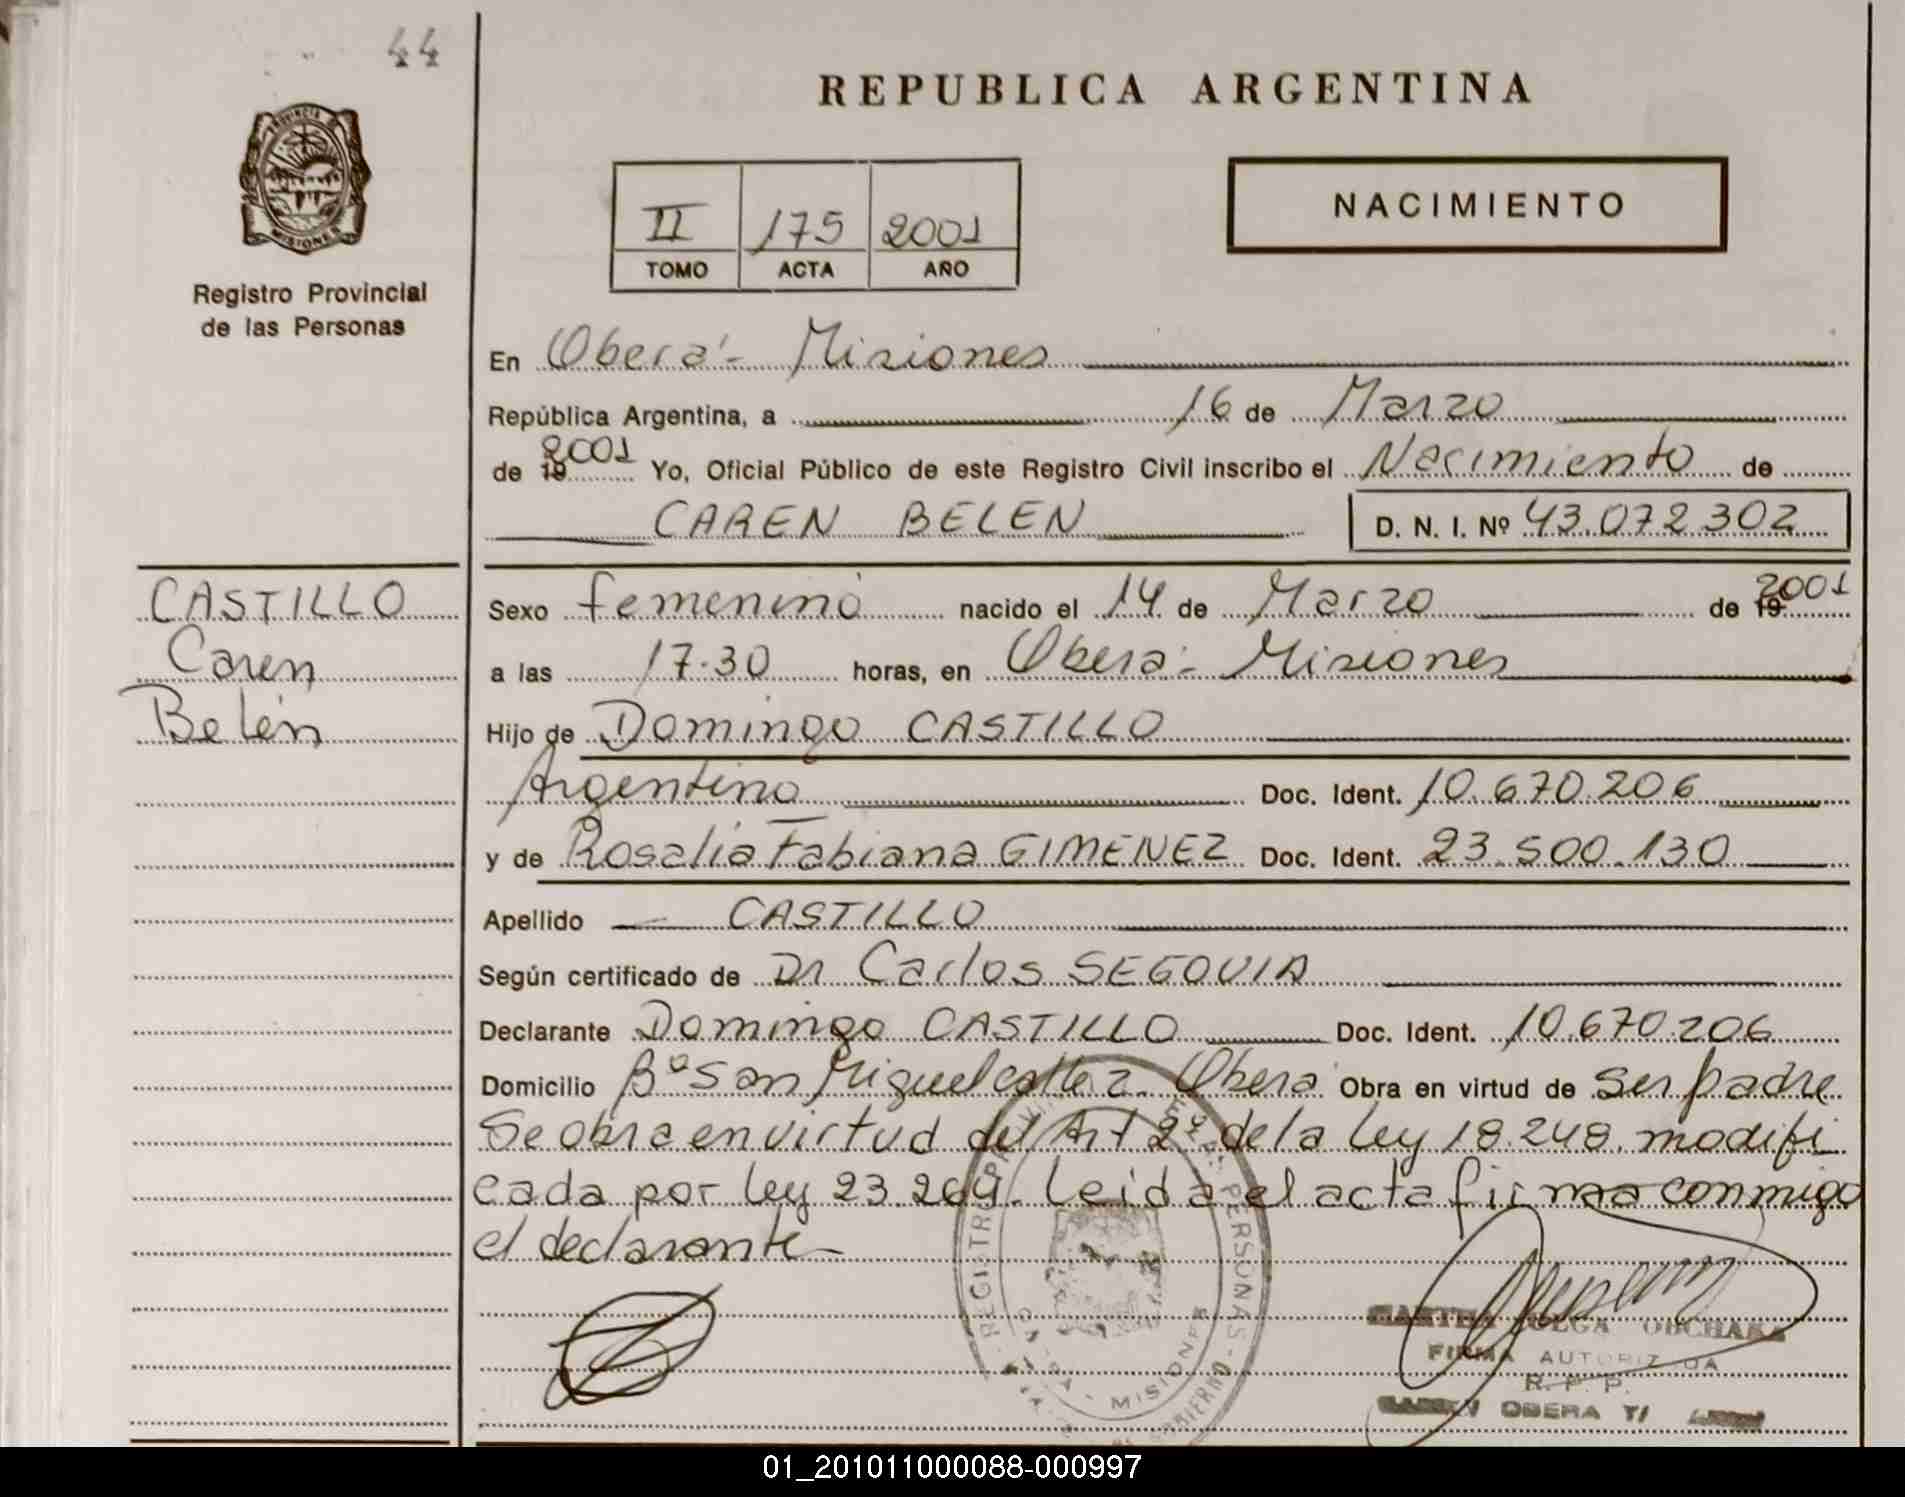 44
REPUBLICA ARGENTINA
PROVINCIA DE
MISIONES
Registro Provincial
de las Personas
II 175 2001
TOMO ACTA AÑO
NACIMIENTO
En Oberá - Misiones
República Argentina, a 16 de Marzo
de 19 2001 Yo, Oficial Público de este Registro Civil inscribo el Nacimiento de
CAREN BELEN D. N. I. Nº 43.072.302
CASTILLO
Caren
Belén
Sexo femenino nacido el 14 de Marzo de 19 2001
a las 17.30 horas, en Oberá - Misiones
Hijo de Domingo CASTILLO
Argentino Doc. Ident. 10.670.206
y de Rosalia Fabiana GIMENEZ Doc. Ident. 23.500.130
Apellido CASTILLO
Según certificado de Dr Carlos SEGOVIA
Declarante Domingo CASTILLO Doc. Ident. 10.670.206
Domicilio Bº San Miguel calle 2 Oberá Obra en virtud de ser padre
Se obra en virtud del Art 2º de la ley 18.248. modifi
cada por ley 23.264. Leida el acta firma conmigo
el declarante
PERSONAS
MISIONES
OLGA
FIRMA
R. P. P.
OBERA
01_201011000088-000997